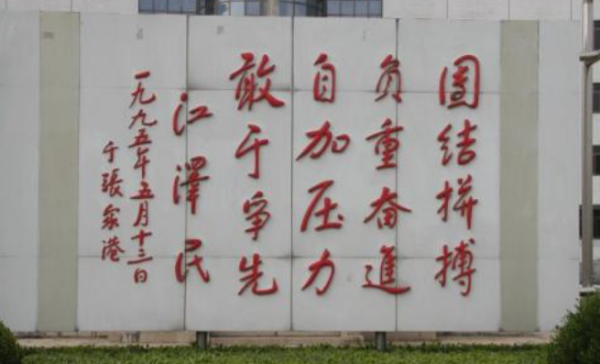 團结拼搏
負重奋進
自加压力
敢于争先
江澤民
一九九五年五月十三日
于張家港